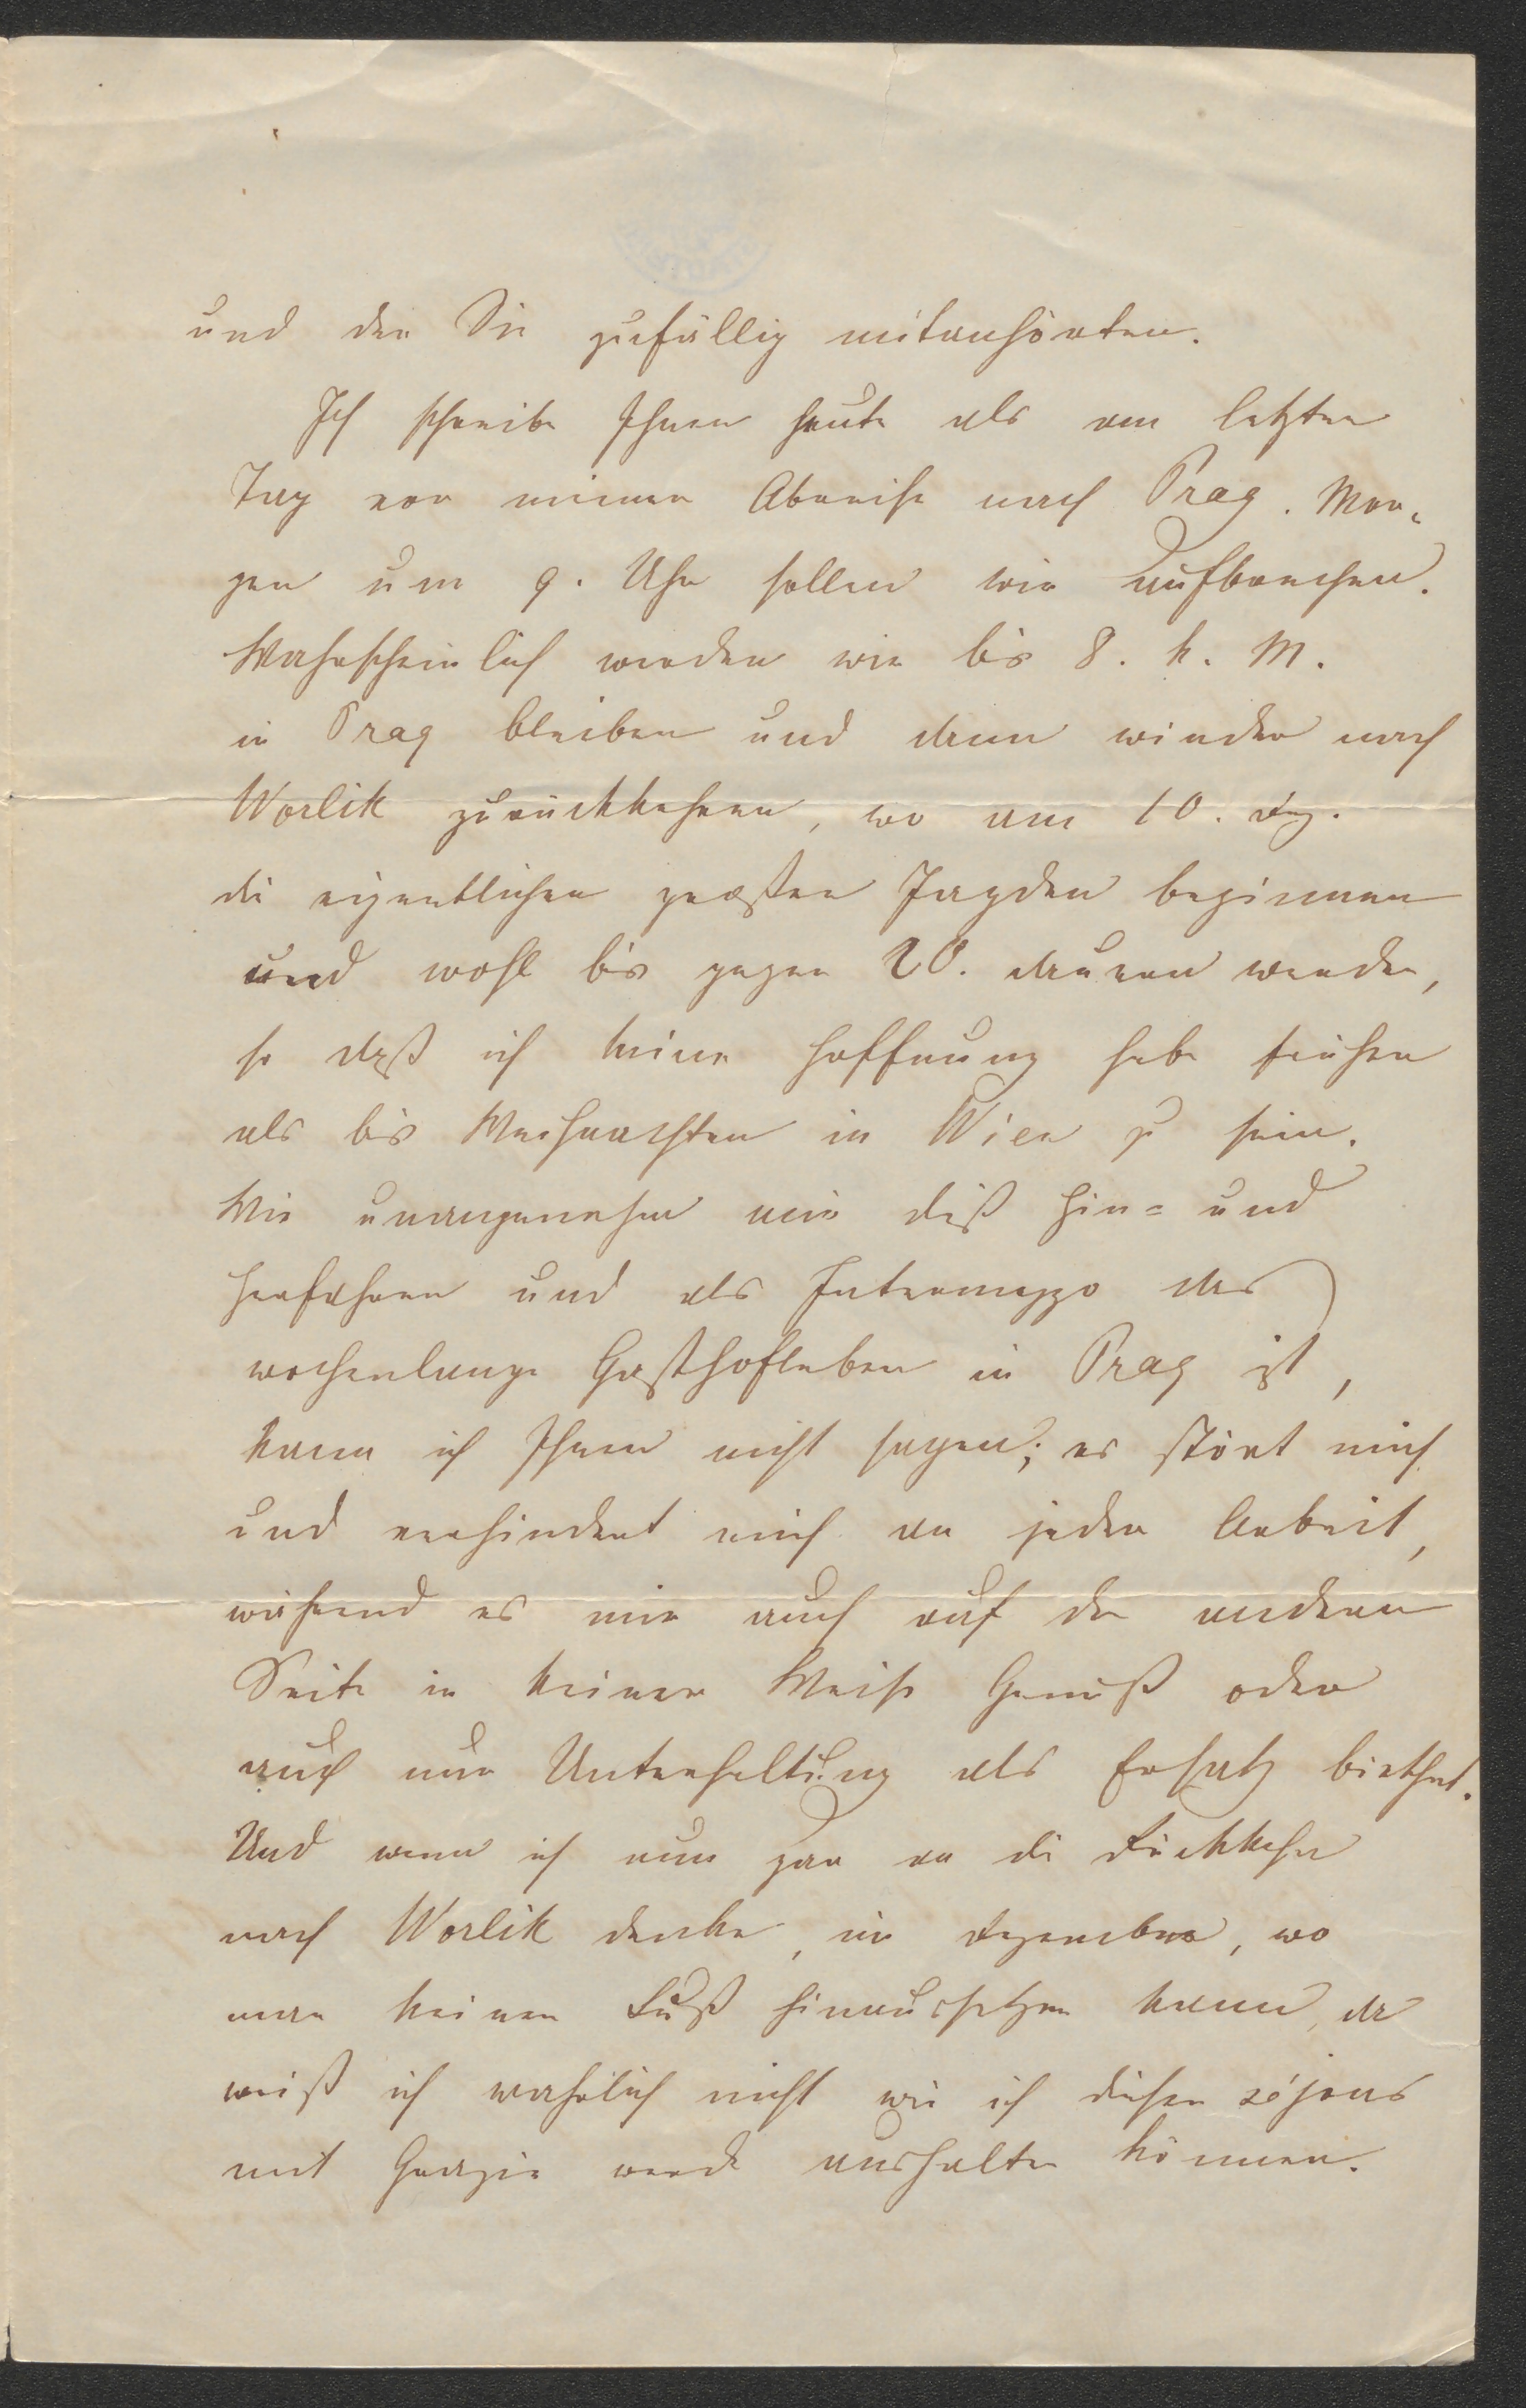 und der Sie zufällig mitanhörten.
Ich schreibe Ihnen heute als am letzten
Tag vor meiner Abreise nach Prag. Mor-
gen um 9. Uhr sollen wir aufbrechen.
Wahrscheinlich werden wir bis 8. k. M.
in Prag bleiben und dann wieder nach
Worlik zurückkehren, wo am 10. Dez.
die eigentlichen großen Jagden beginnen
und wohl bis gegen 20. dauern werden,
so daß ich keine Hoffnung habe früher
als bis Weihnachten in Wien zu sein.
Wie unangenehm mir dieß Hin- und
Herfahren und als Intermezzo das
wochenlange Gasthofleben in Prag ist,
kann ich Ihnen nicht sagen; es stört mich
und verhindert mich an jeder Arbeit,
während es mir auch auf der anderen
Seite in keiner Weise Genuß oder
auch nur Unterhaltung als Ersatz biethet.
Und wenn ich nun gar an die Rückkehr
nach Worlik denke, im Dezember, wo
man keinen Fuß hinaussetzen kann, da
weiß ich wahrlich nicht wie ich diesen séjour
mit Grazie werde aushalten können.